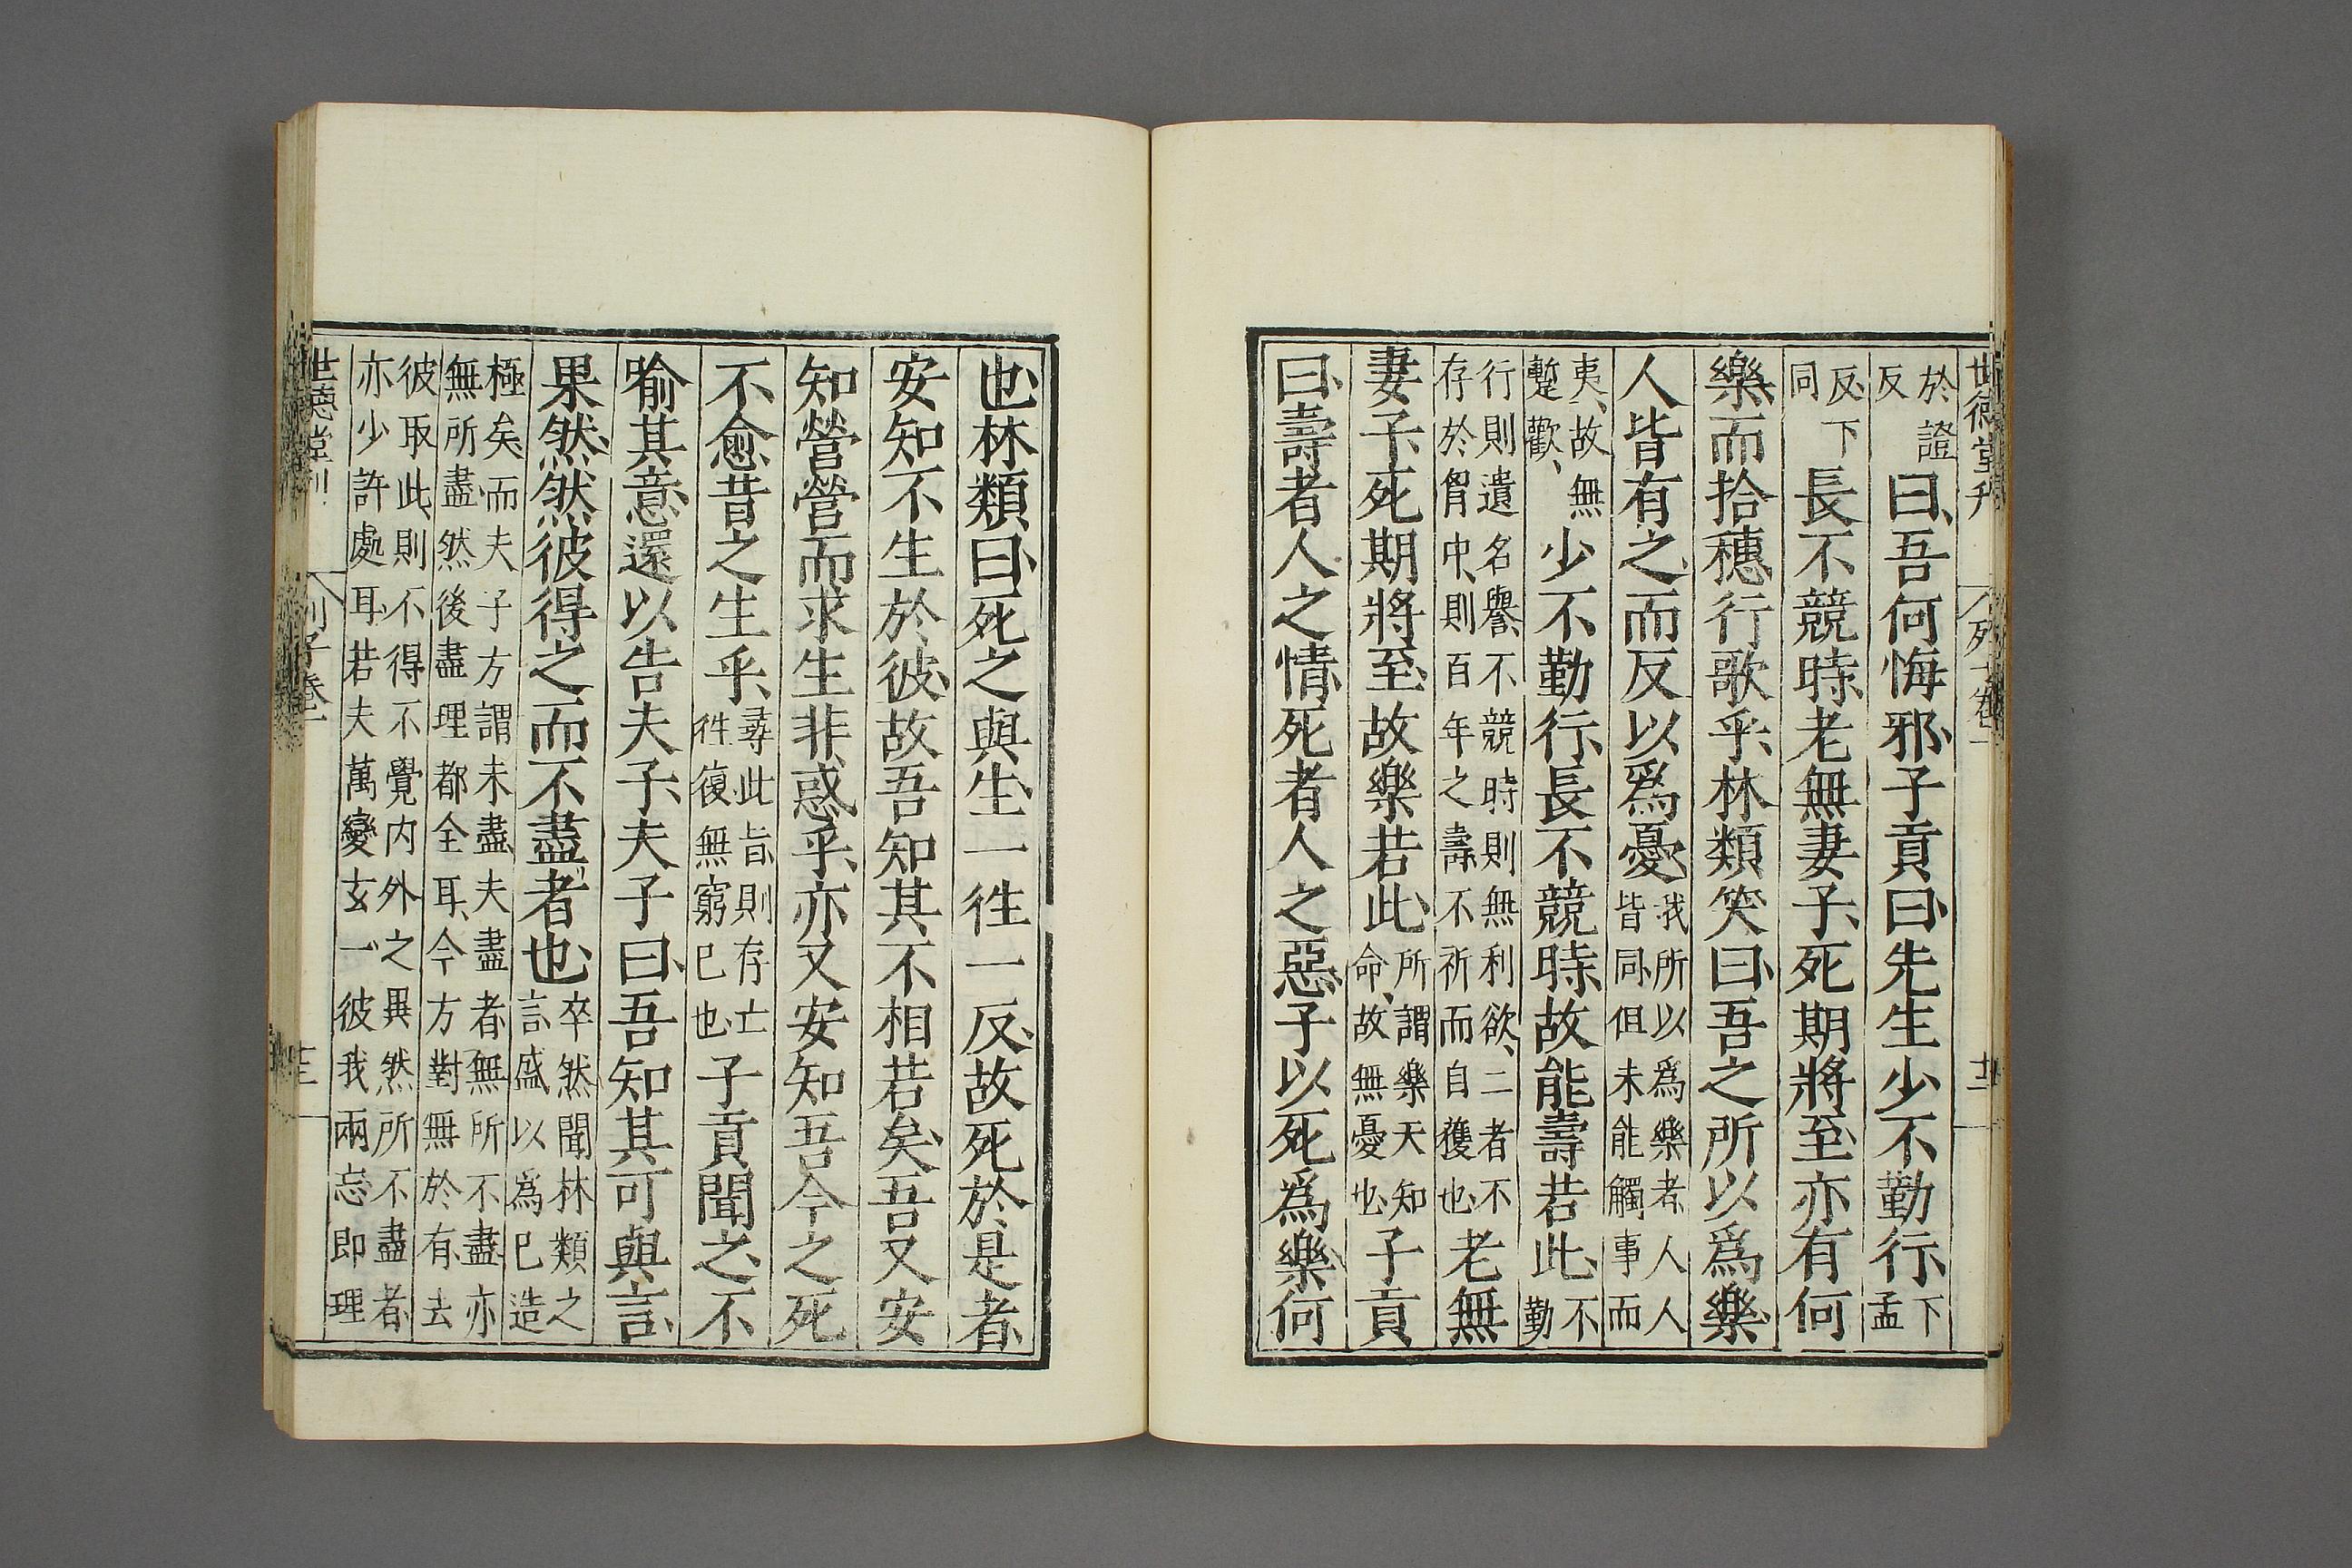 世德堂刊 列子卷一 十二
於證反曰吾何悔邪子貢曰先生少不勤行下孟
反下同長不競時老無妻子死期將至亦有何
樂而拾穗行歌乎林類笑曰吾之所以爲樂
人皆有之而反以爲憂我所以爲樂者人人皆同但未能觸事而
夷故無蹔歡少不勤行長不競時故能壽若此不勤
行則遺名譽不競時則無利欲二者不存於胷中則百年之壽不祈而自獲也老無
妻子死期將至故樂若此所謂樂天知命故無憂也子貢
曰壽者人之情死者人之惡子以死爲樂何
也林類曰死之與生一徃一反故死於是者
安知不生於彼故吾知其不相若矣吾又安
知營營而求生非惑乎亦又安知吾今之死
不愈昔之生乎尋此旨則存亡徃復無窮已也子貢聞之不
喻其意還以告夫子夫子曰吾知其可與言
果然然彼得之而不盡者也卒然聞林類之言盛以爲已造
極矣而夫子方謂未盡夫盡者無所不盡亦無所盡然後盡理都全耳今方對無於有去
彼取此則不得不覺内外之異然所不盡者亦少許處耳若夫萬變玄一彼我兩忘即理
世德堂刊 列子卷一 十三